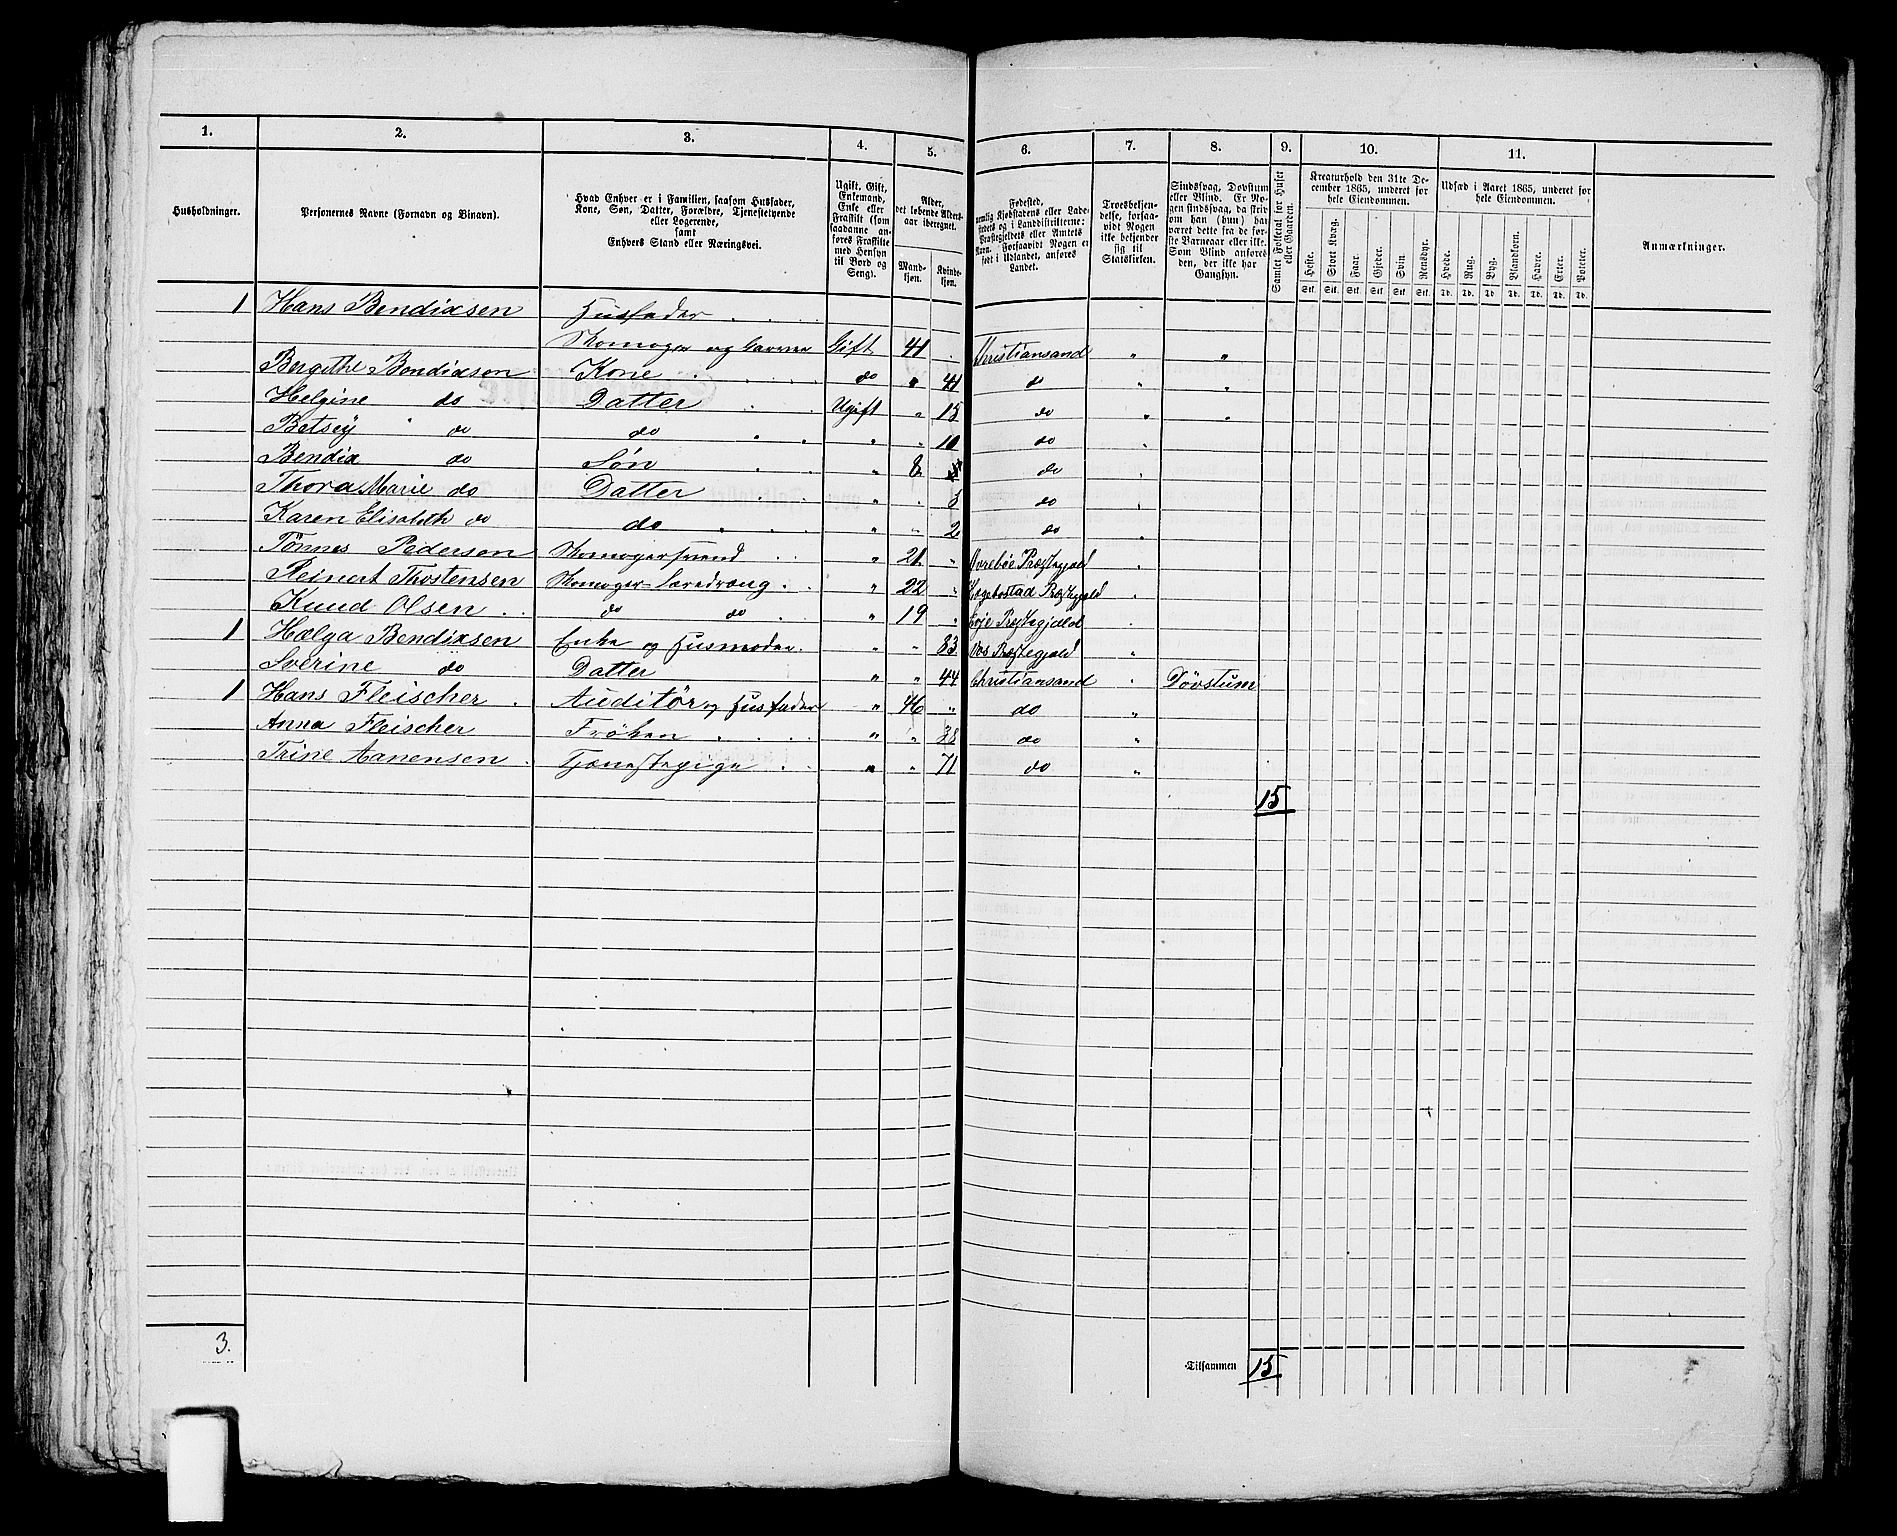 1. 2. 3. 4. 5. 6. 7. 8. 9. 10. 11.
Husholdninger.
Personernes Navne (Fornavn og Binavn).
Hvad Enhver er i Familien, saasom Husfader,
Kone, Søn, Datter, Forældre, Tjenestetyende
eller Logerende,
samt
Enhvers Stand eller Næringsvei.
Ugift, Gift,
Enkemand,
Enke eller
Fraskilt (som
saadanne an-
føres Fraskilte
med Hensyn
til Bord og
Seng).
Alder,
det løbende Alders-
aar iberegnet.
Mand-
kjøn.
Kvinde-
kjøn.
Fødested,
nemlig Kjøbstadens eller Lade-
stedets og i Landdistrikterne:
Præstegjeldets eller Amtets
Navn. Forsaavidt Nogen er
født i Udlandet, anføres
Landet.
Troesbekjen-
delse, forsaa-
vidt Nogen
ikke bekjender
sig til
Statskirken.
Sindssvag, Døvstum
eller Blind. Er No-
gen sindssvag, da skri-
ves om han (hun) har
været dette fra de før-
ste Barneaar eller ikke.
Som Blind anføres
den, der ikke har
Gangsyn.
Samlet Folketal for Huset
eller Gaarden.
Kreaturhold den 31te De-
cember 1865, underet for
hele Eiendommen.
Heste. Stort Kvæg. Faar. Gjeder. Svin. Rensdyr.
Stk. Stk. Stk. Stk. Stk. Stk.
Udsæd i Aaret 1865, underet for
hele Eiendommen.
Hvede. Rug. Byg. Blandkorn. Havre. Erter. Poteter.
Td. Td. Td. Td. Td. Td. Td.
Anmærkninger.
1 Hans Bendixsen Husfader
Skomager og Garver Gift 41 . Christiansand " "
Bergithe Bendixsen Kone do " 41 do " "
Helgine do Datter Ugift " 15 do " "
Betsey do do " " 10 do "
Bendix do Søn " 8 do "
Thora Marie do Datter " " 5 do "
Karen Elisabeth do do " " 2 do "
Tönnes Pedersen Skomagersvend " 21 " Præstegjeld "
Reinert Thostensen Skomager-Læredreng " 22 " Hægebostad Præstegjeld "
Knud Olsen do do " 19 " Evje Præstegjeld "
1 Hælga Bendixsen Enke og Husmoder " " 83 Præstegjeld "
Sverine do Datter " " 44 Christiansand " Døvstum
1 Hans Fleischer Auditör og Husfader " 46 " do "
Anna Fleischer Fröken " " 38 do "
Trine Aanensen Tjænestepige " " 71 do "
15
3.
Tilsammen 15